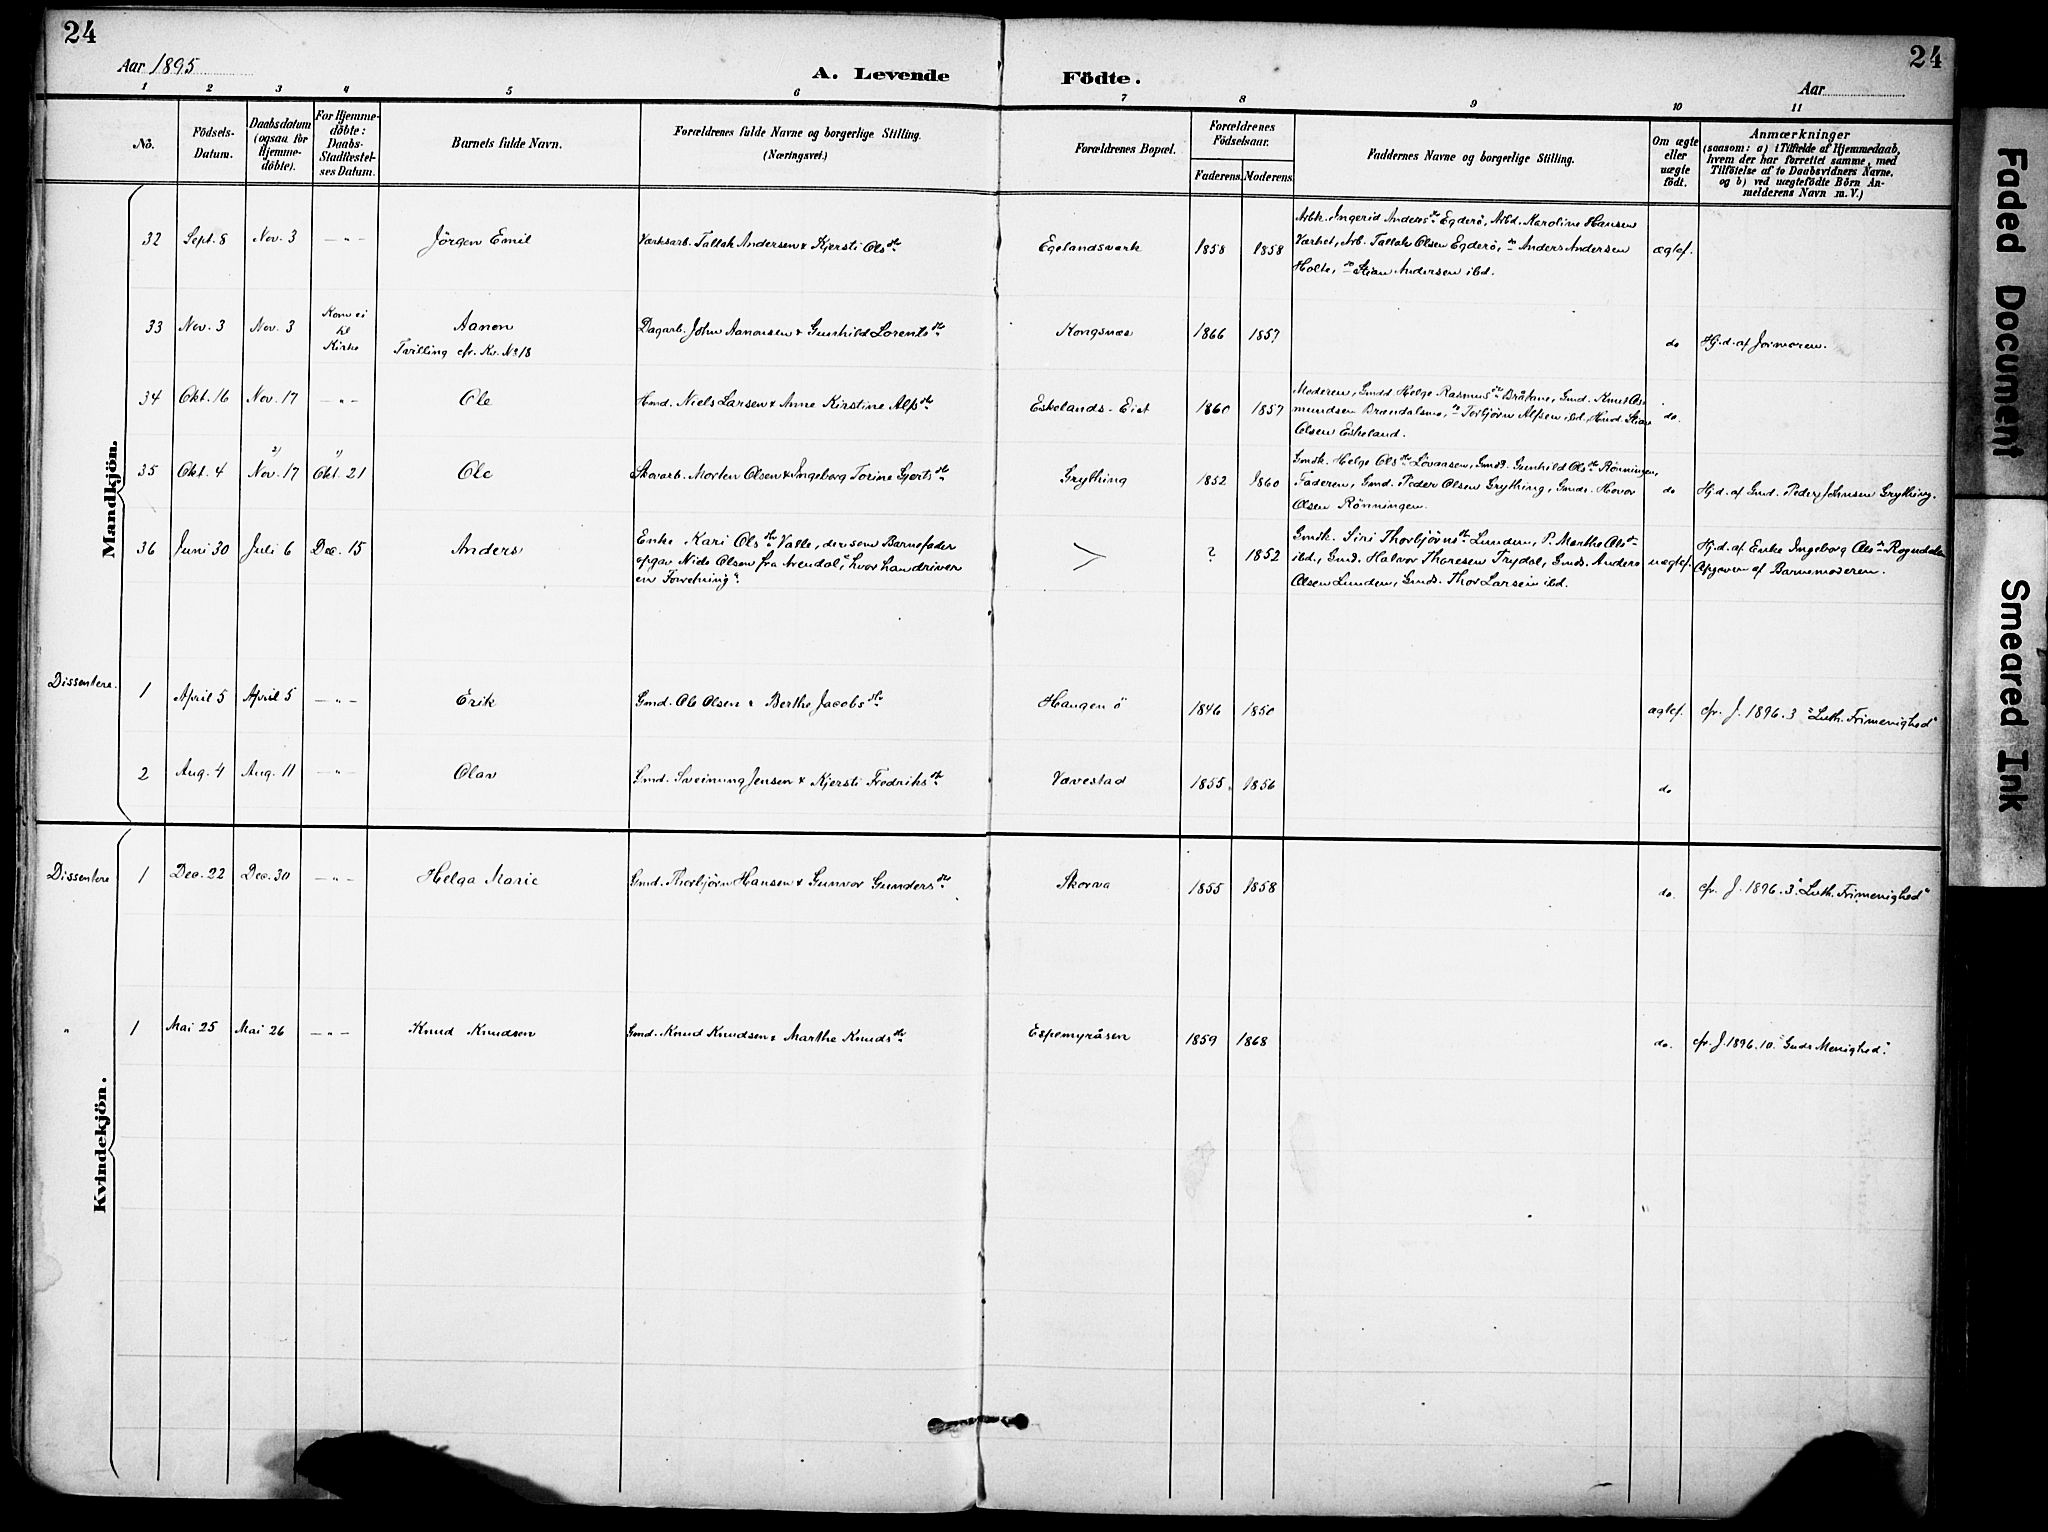 24
24
Aar 1895
A. Levende Födte.
Aar
1 2 3 4 5 6 7 8 9 10 11
No.
Födsels-
Datum.
Daabsdatum
(ogsaa for
Hjemme-
döbte).
For Hjemme-
döbte:
Daabs-
Stadfæstel-
ses Datum.
Barnets fulde Navn.
Forældrenes fulde Navne og borgerlige Stilling.
(Næringsvei.)
Forældrenes Bopæl.
Forældrenes
Födselsaar.
Faderens. Moderens.
Faddernes Navne og borgerlige Stilling.
Om ægte
eller
uægte
födt.
Anmærkninger
(saasom: a) i Tilfælde af Hjemmedaab,
hvem der har forrettet samme, med
Tilföielse af to Daabsvidners Navne,
og b) ved uægtefödte Börn An-
melderens Navn m. V.)
Mandkjön.
32 Sept. 8 Nov. 3 — " — Jörgen Emil Værksarb. Tallak Andersen & Kjersti Olsdtr Egelandsværk 1858 1858
Arbk. Ingerid Andersdtr Egderö, Arbd. Karoline Hansen
Værket, Arb. Tallak Olsen Egderö, do Anders Andersen
Holte, do Stian Andersen ibd.
ægtef.
33 Nov. 3 Nov. 3 Kom ei
til
Kirke
Aanon
Tvilling cfr. Kv. No 18
Dagarb. John Aanonsen & Gunhild Lorentsdtr Kongsnæs 1866 1857 do Hj.d. af Jormoren.
34 Okt. 16 Nov. 17 — " — Ole Hmd. Niels Larsen & Anne Kirstine Alfsdtr Eskelands-Eiet 1860 1857
Moderen, Gmdd Helge Rasmusdtr Bråtane, Gmd. Knut Os-
mundsen Brændalsmo, do Torbjörn Alfsen ibd. Hmd. Stian
Olsen Eskeland.
do.
35 Okt. 4 2) Nov. 17 1) Okt. 21 Ole Skovarb. Morten Olsen & Ingeborg Torine Gjertsdtr Grytting 1852 1860
Gmdk. Helge Olsdtr Lövaasen, Gmdd. Gunhild Olsdtr Rönningen,
Faderen, Gmd. Peder Olsen Grytting, Gmds. Hovor
Olsen Rönningen.
do Hj.d. af Gmd. Peder Johnsen Grytting.
36 Juni 30 Juli 6 Dec. 15 Anders
Enke Kari Olsdtr Valle, der som Barnefader
opgav Niels Olsen fra Arendal, "hvor han driver
en Forretning".
? 1852
Gmdk. Siri Thorbjörnsdtr Lunden, P. Marthe Olsdtr
ibd., Gmd. Halvor Thoresen Trydal, Gmds. Anders
Olsen Lunden, Gmds. Thor Larsen ibd.
uægtef.
Hj.d. af Enke Ingeborg Olsdtr Rogndalen
Opgaven af Barnemoderen.
Dissentere. 1 April 5 April 5 — " — Erik Gmd. Ole Olsen & Berthe Jacobsdtr Haugen ö 1846 1850 ægtef. cfr. J. 1896. 3 "Luth. Frimenighed"
2 Aug. 4 Aug. 11 — " — Olav Gmd. Sveinung Jensen & Kjersti Fredriksdtr Vævestad 1855 1856 do
Kvindekjön.
Dissentere 1 Dec. 22 Dec. 30 — " — Helga Marie Gmd. Thorbjörn Hansen & Gunvor Gundersdtr Skorva 1855 1858 do. cfr. J. 1896. 3. "Luth. Frimenighed"
" 1 Mai 25 Mai 26 — " — Knud Knudsen Gmd. Knud Knudsen & Marthe Knudsdtr Espemyråsen 1859 1868 do. cfr. J. 1896. 10. "Guds Menighed".
Faded Document
Smeared Ink